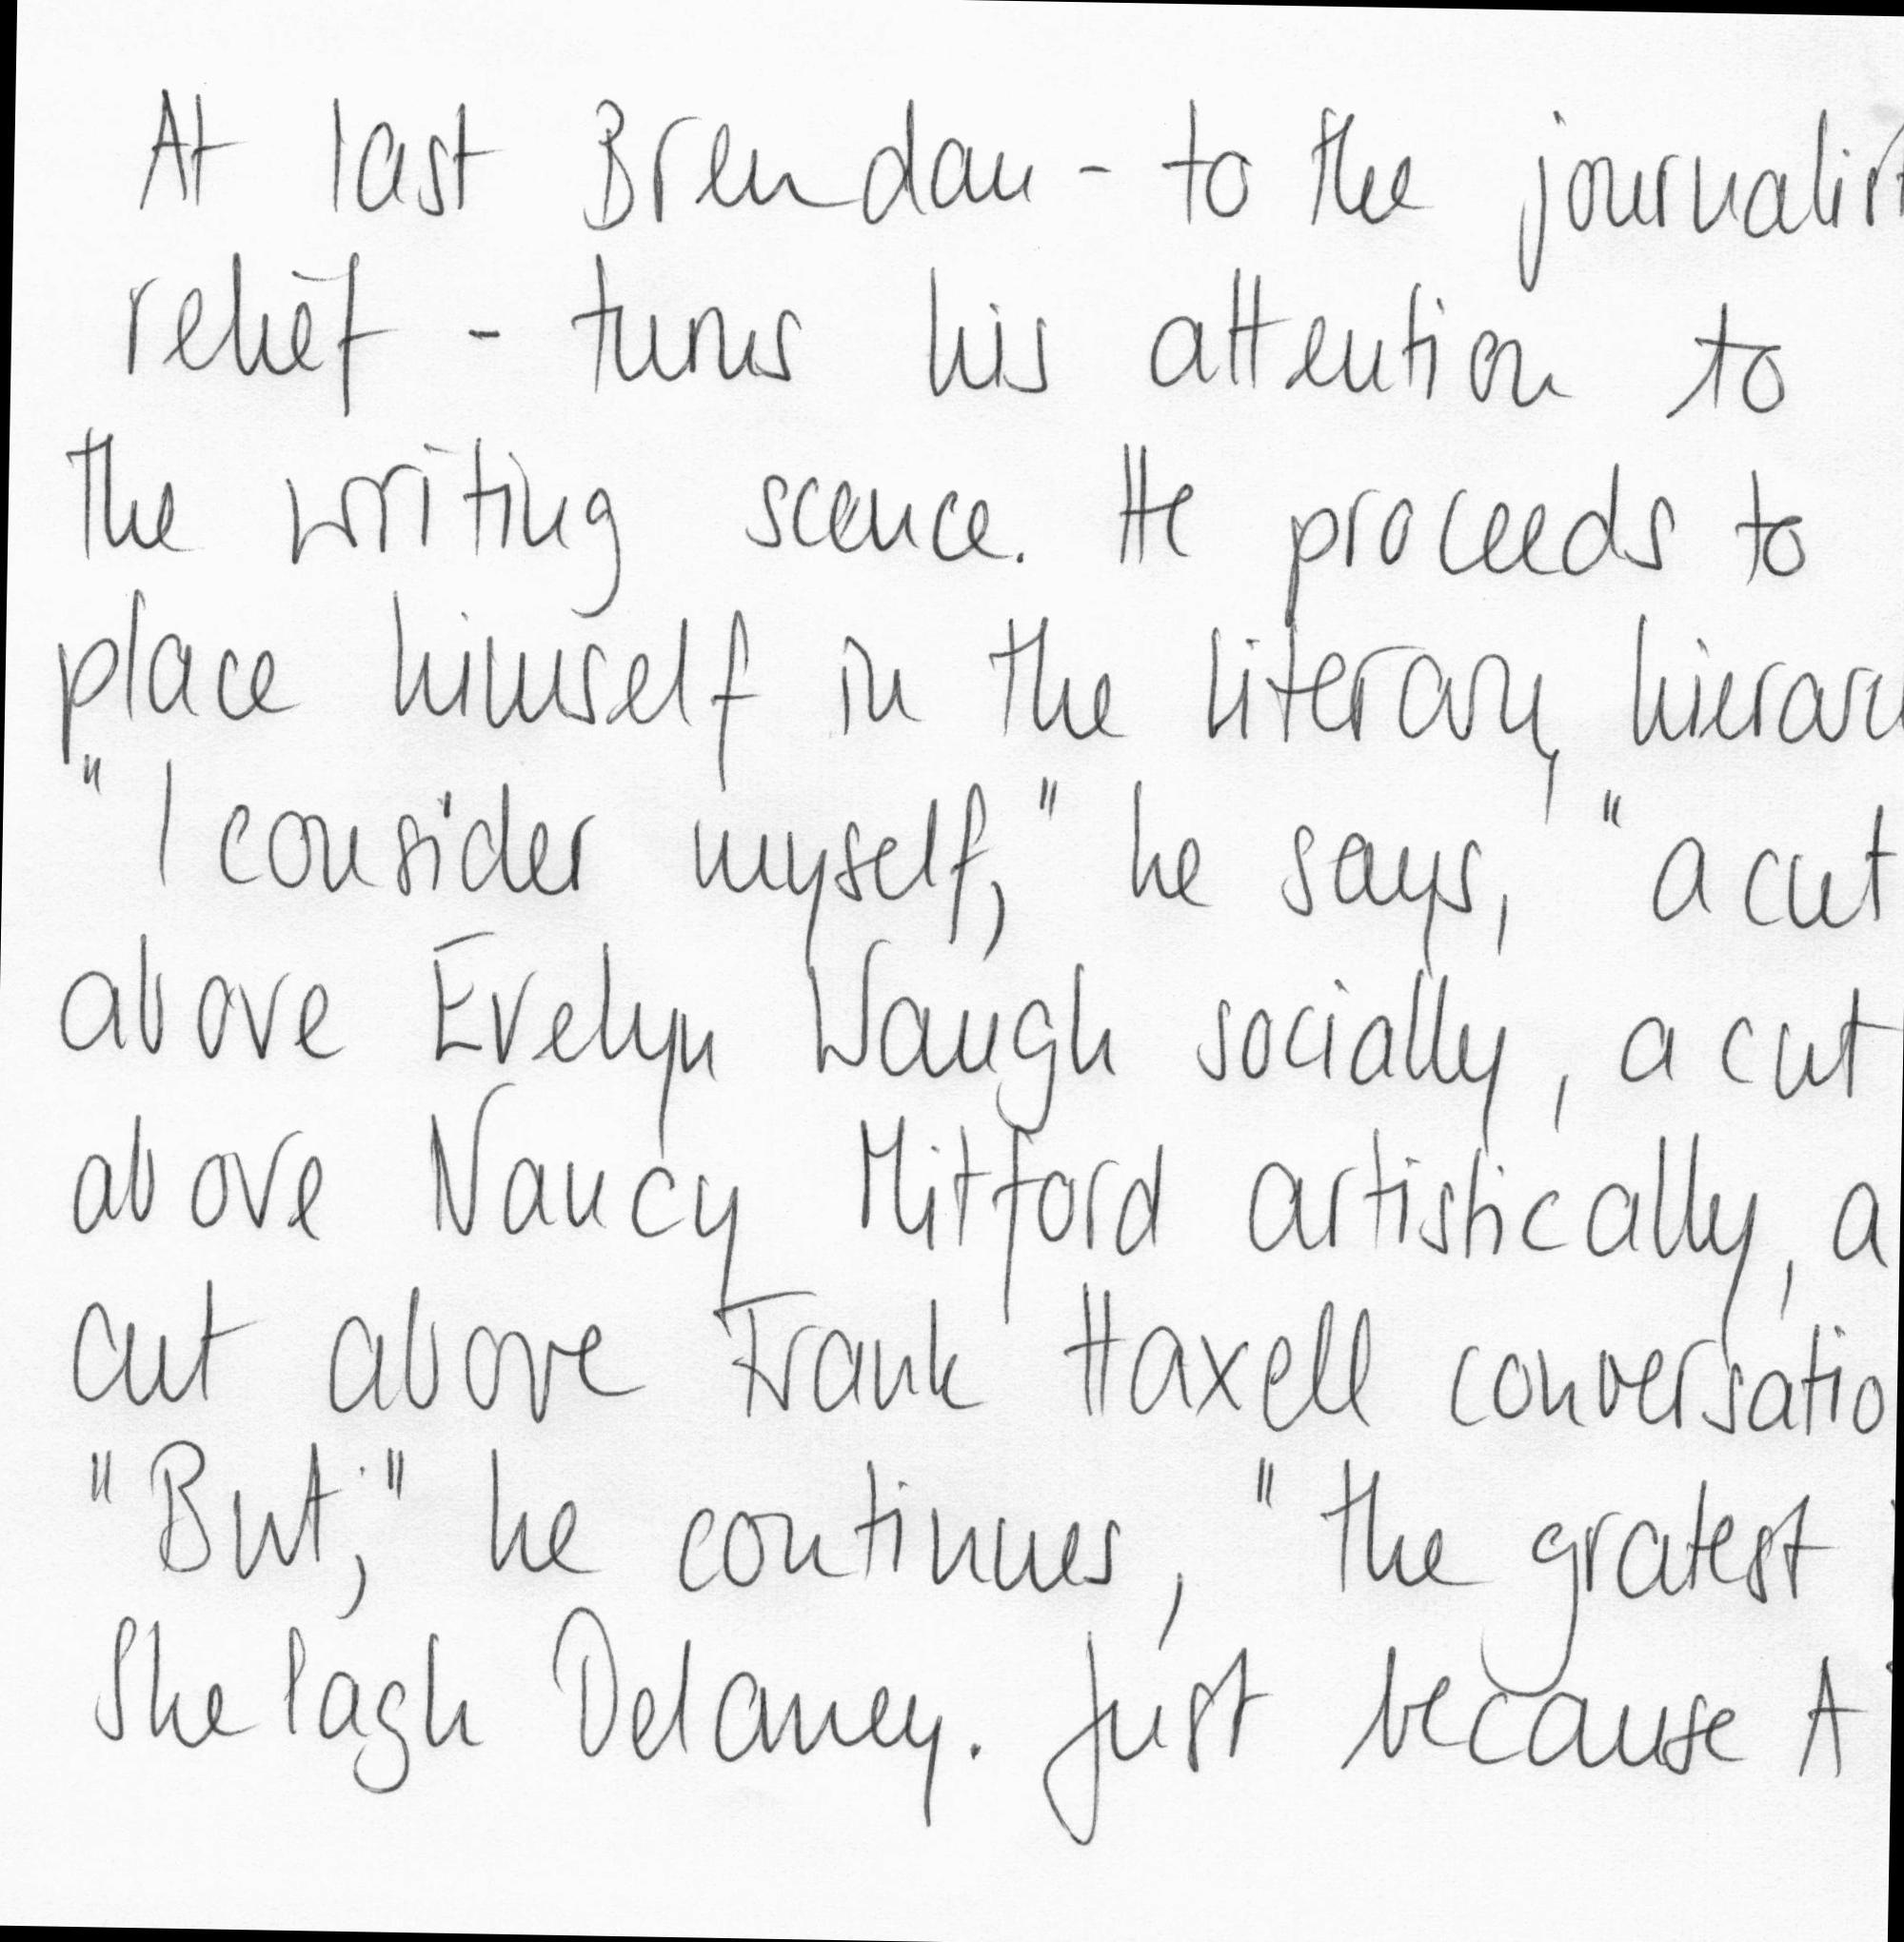 At last Brendan - to the
relief - turns his attention to
the writing scence. He proceeds to
place himself in the literary
"I consider myself," he says, "a cut
above Evelyn Waugh socially, a cut
above Nancy Mitford artistically, a
cut above Frank Haxell
"But," he continues, "the gratest
Shelagh Delaney. Just because A